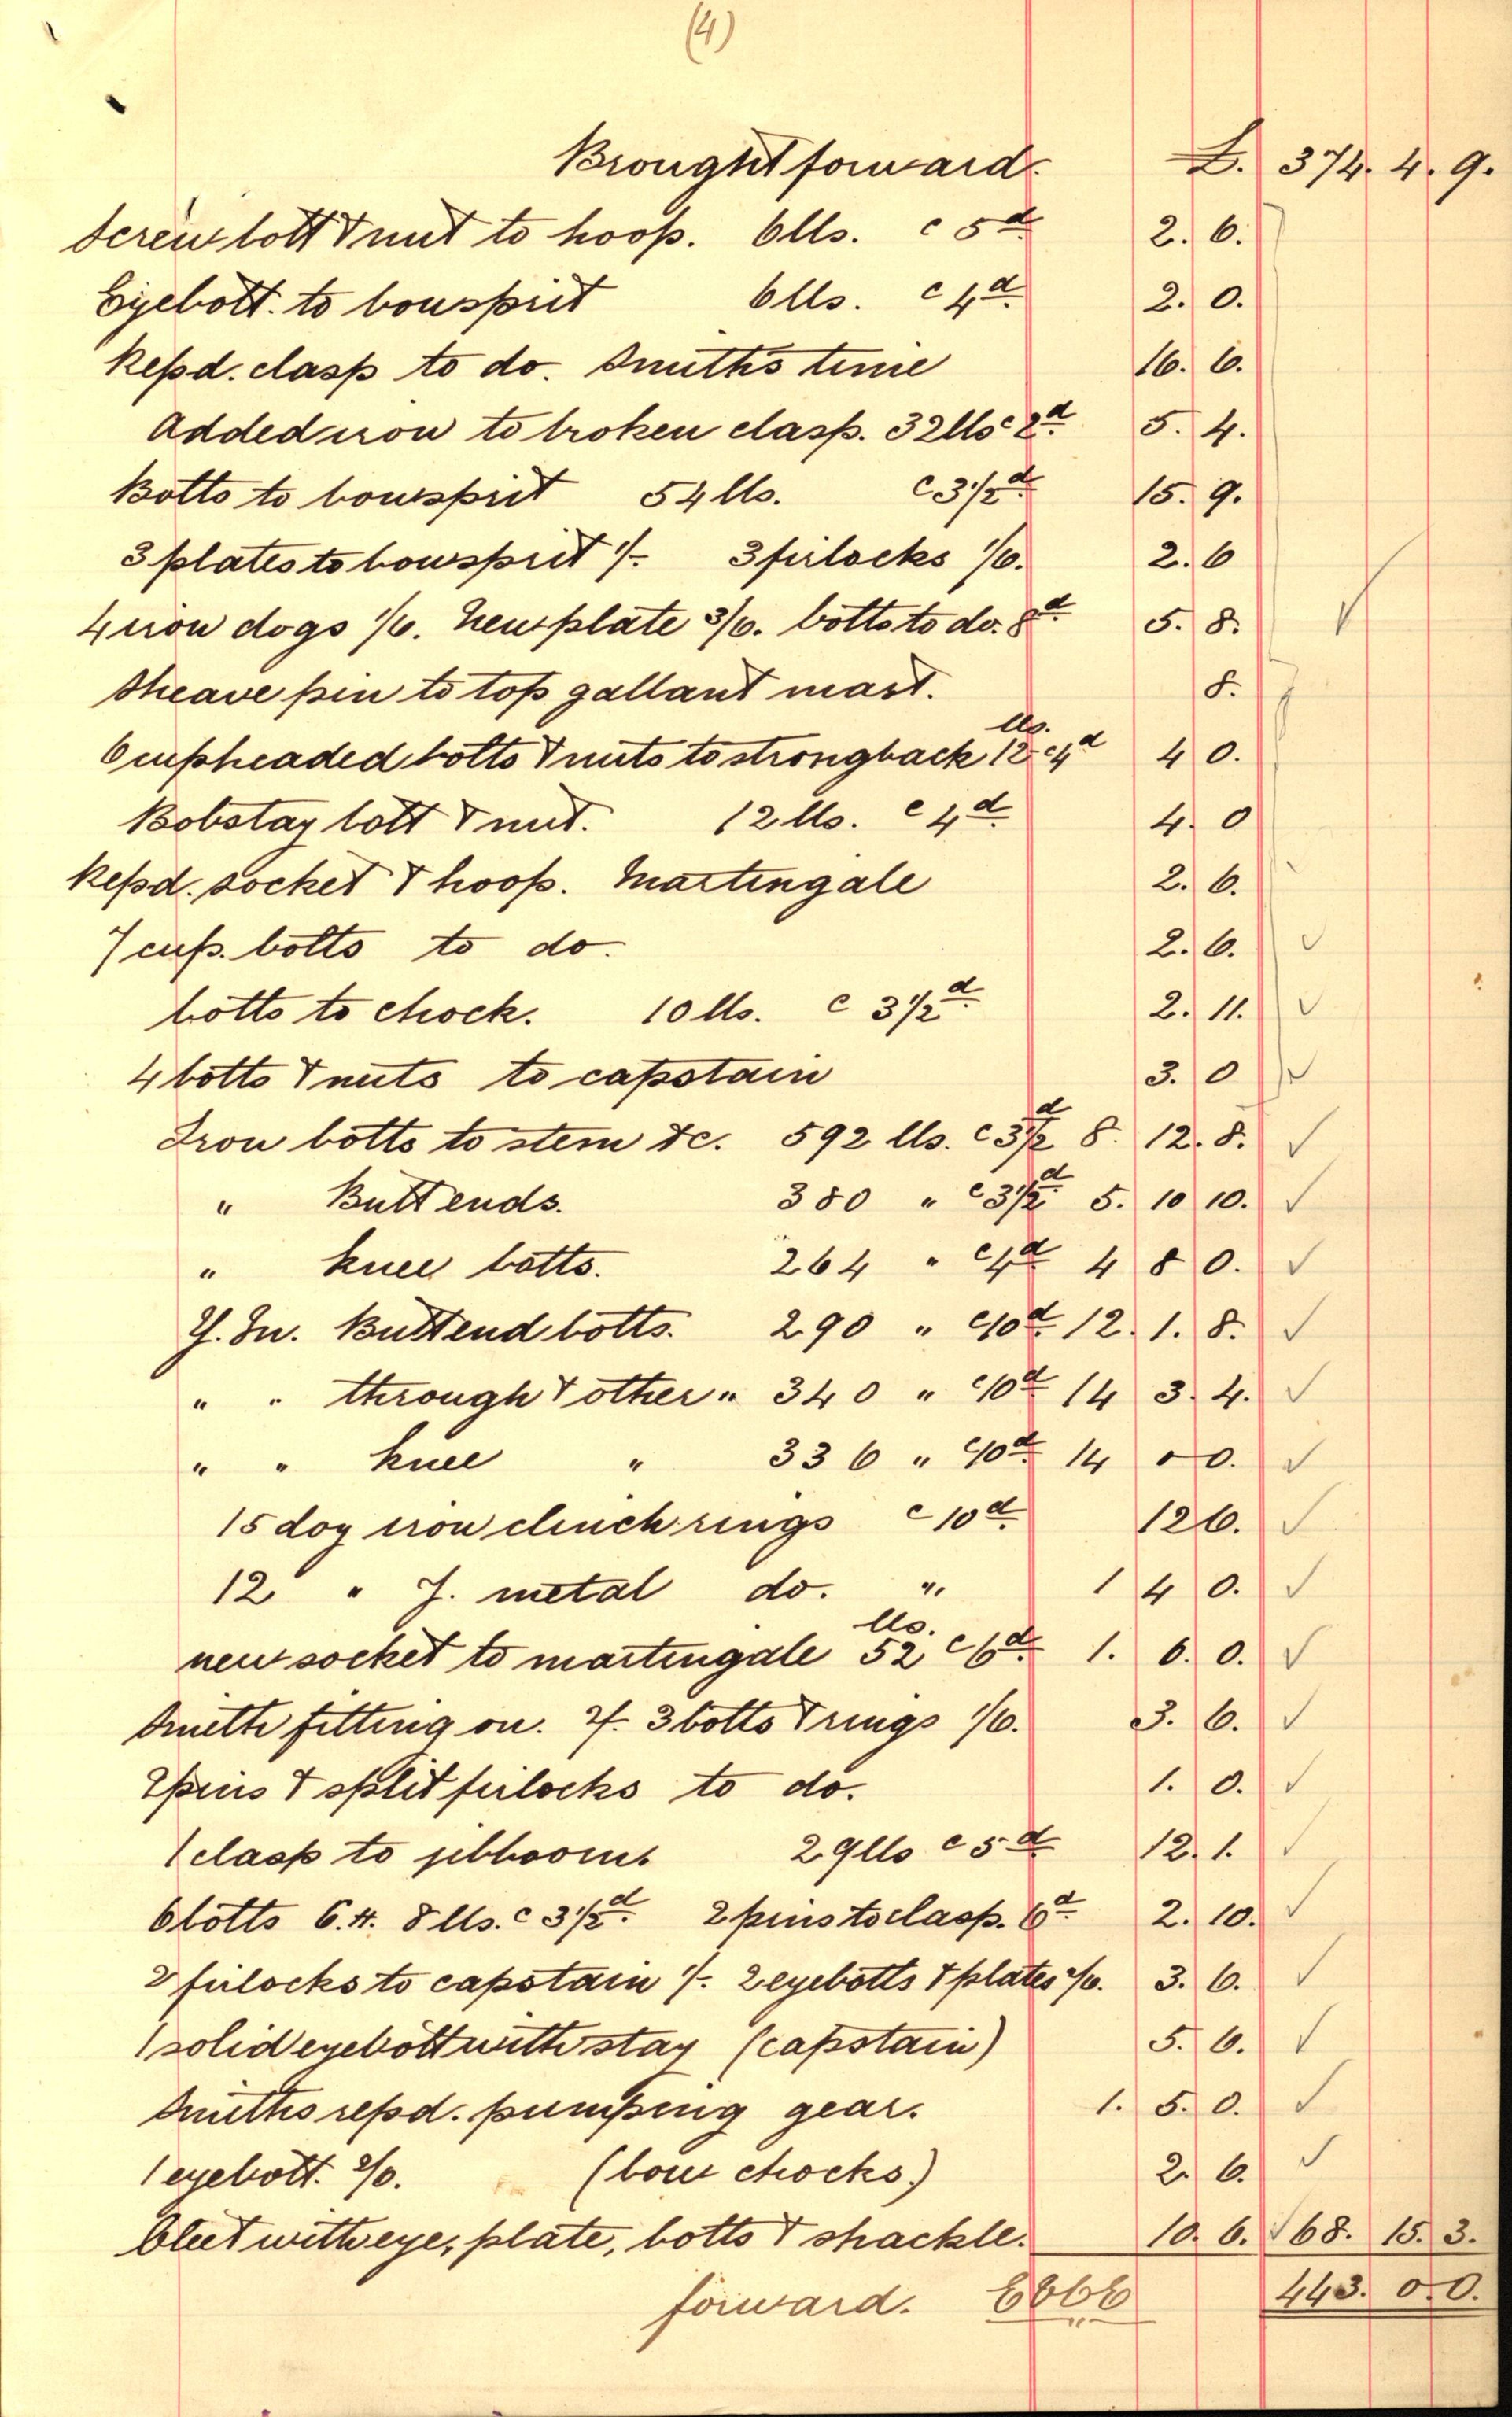 (4)
Brought forward. £. 374. 4. 9.
Screw bolt & nut to hoop. 6 lbs. c 5d. 2. 6.
Eyebolt. to bowsprit 6 lbs. c 4d. 2. 0.
Repd. clasp to do. Smiths time 16. 6.
Added iron to broken clasp. 32 lbs c 2d. 5. 4.
Bolts to bowsprit 54 lbs. c 3½d. 15. 9.
3 plates to bowsprit 1/-. 3 firlocks 1/6. 2. 6
4 iron dogs 1/6. New plate 3/6. bolts to do. 8d. 5. 8.
Sheave pin to top gallant mast. 8.
6 cupheaded bolts & nuts to strongback 12 lbs. c 4d 4 0.
Bobstay bolt & nut. 12 lbs. c 4d. 4. 0
Repd. socket & hoop. Martingale 2. 6.
7 cup. bolts to do. 2. 6.
bolts to chock. 10 lbs. c 3½d. 2. 11.
4 bolts & nuts to capstain 3. 0
Iron bolts to stem &c. 592 lbs. c 3½d 8. 12. 8.
" Butt ends. 380 " c 3½d. 5. 10 10.
" knee bolts. 264 " c 4d 4 8 0.
Y. In. Buttend bolts. 290 " c 10d. 12. 1. 8.
" " through & other " 340 " c 10d 14 3. 4.
" " knee " 336 " c 10d. 14 0 0.
15 doz iron clinch rings c 10d. 12 6.
12 " Y. metal do. " 1 4 0.
new socket to martingale 52 lbs. c 6d. 1. 6. 0.
Smith fitting on. 2/-. 3 bolts & rings 1/6. 3. 6.
2 pins & split firlocks to do. 1. 0.
1 clasp to jibboom. 29 lbs c 5d 12. 1.
6 bolts 6.#. 8 lbs. c 3½d. 2 pins to clasp. 6d. 2. 10.
2 firlocks to capstain 1/-. 2 eyebolts & plates 2/6. 3. 6.
1 solid eyebolt with stay (capstain) 5. 6.
Smiths repd. pumping gear. 1. 5. 0.
1 eyebolt. 2/6. (bow chocks.) 2. 6.
Cleet with eye, plate, bolts & shackle. 10. 6. 68. 15. 3.
forward. 443. 0. 0.